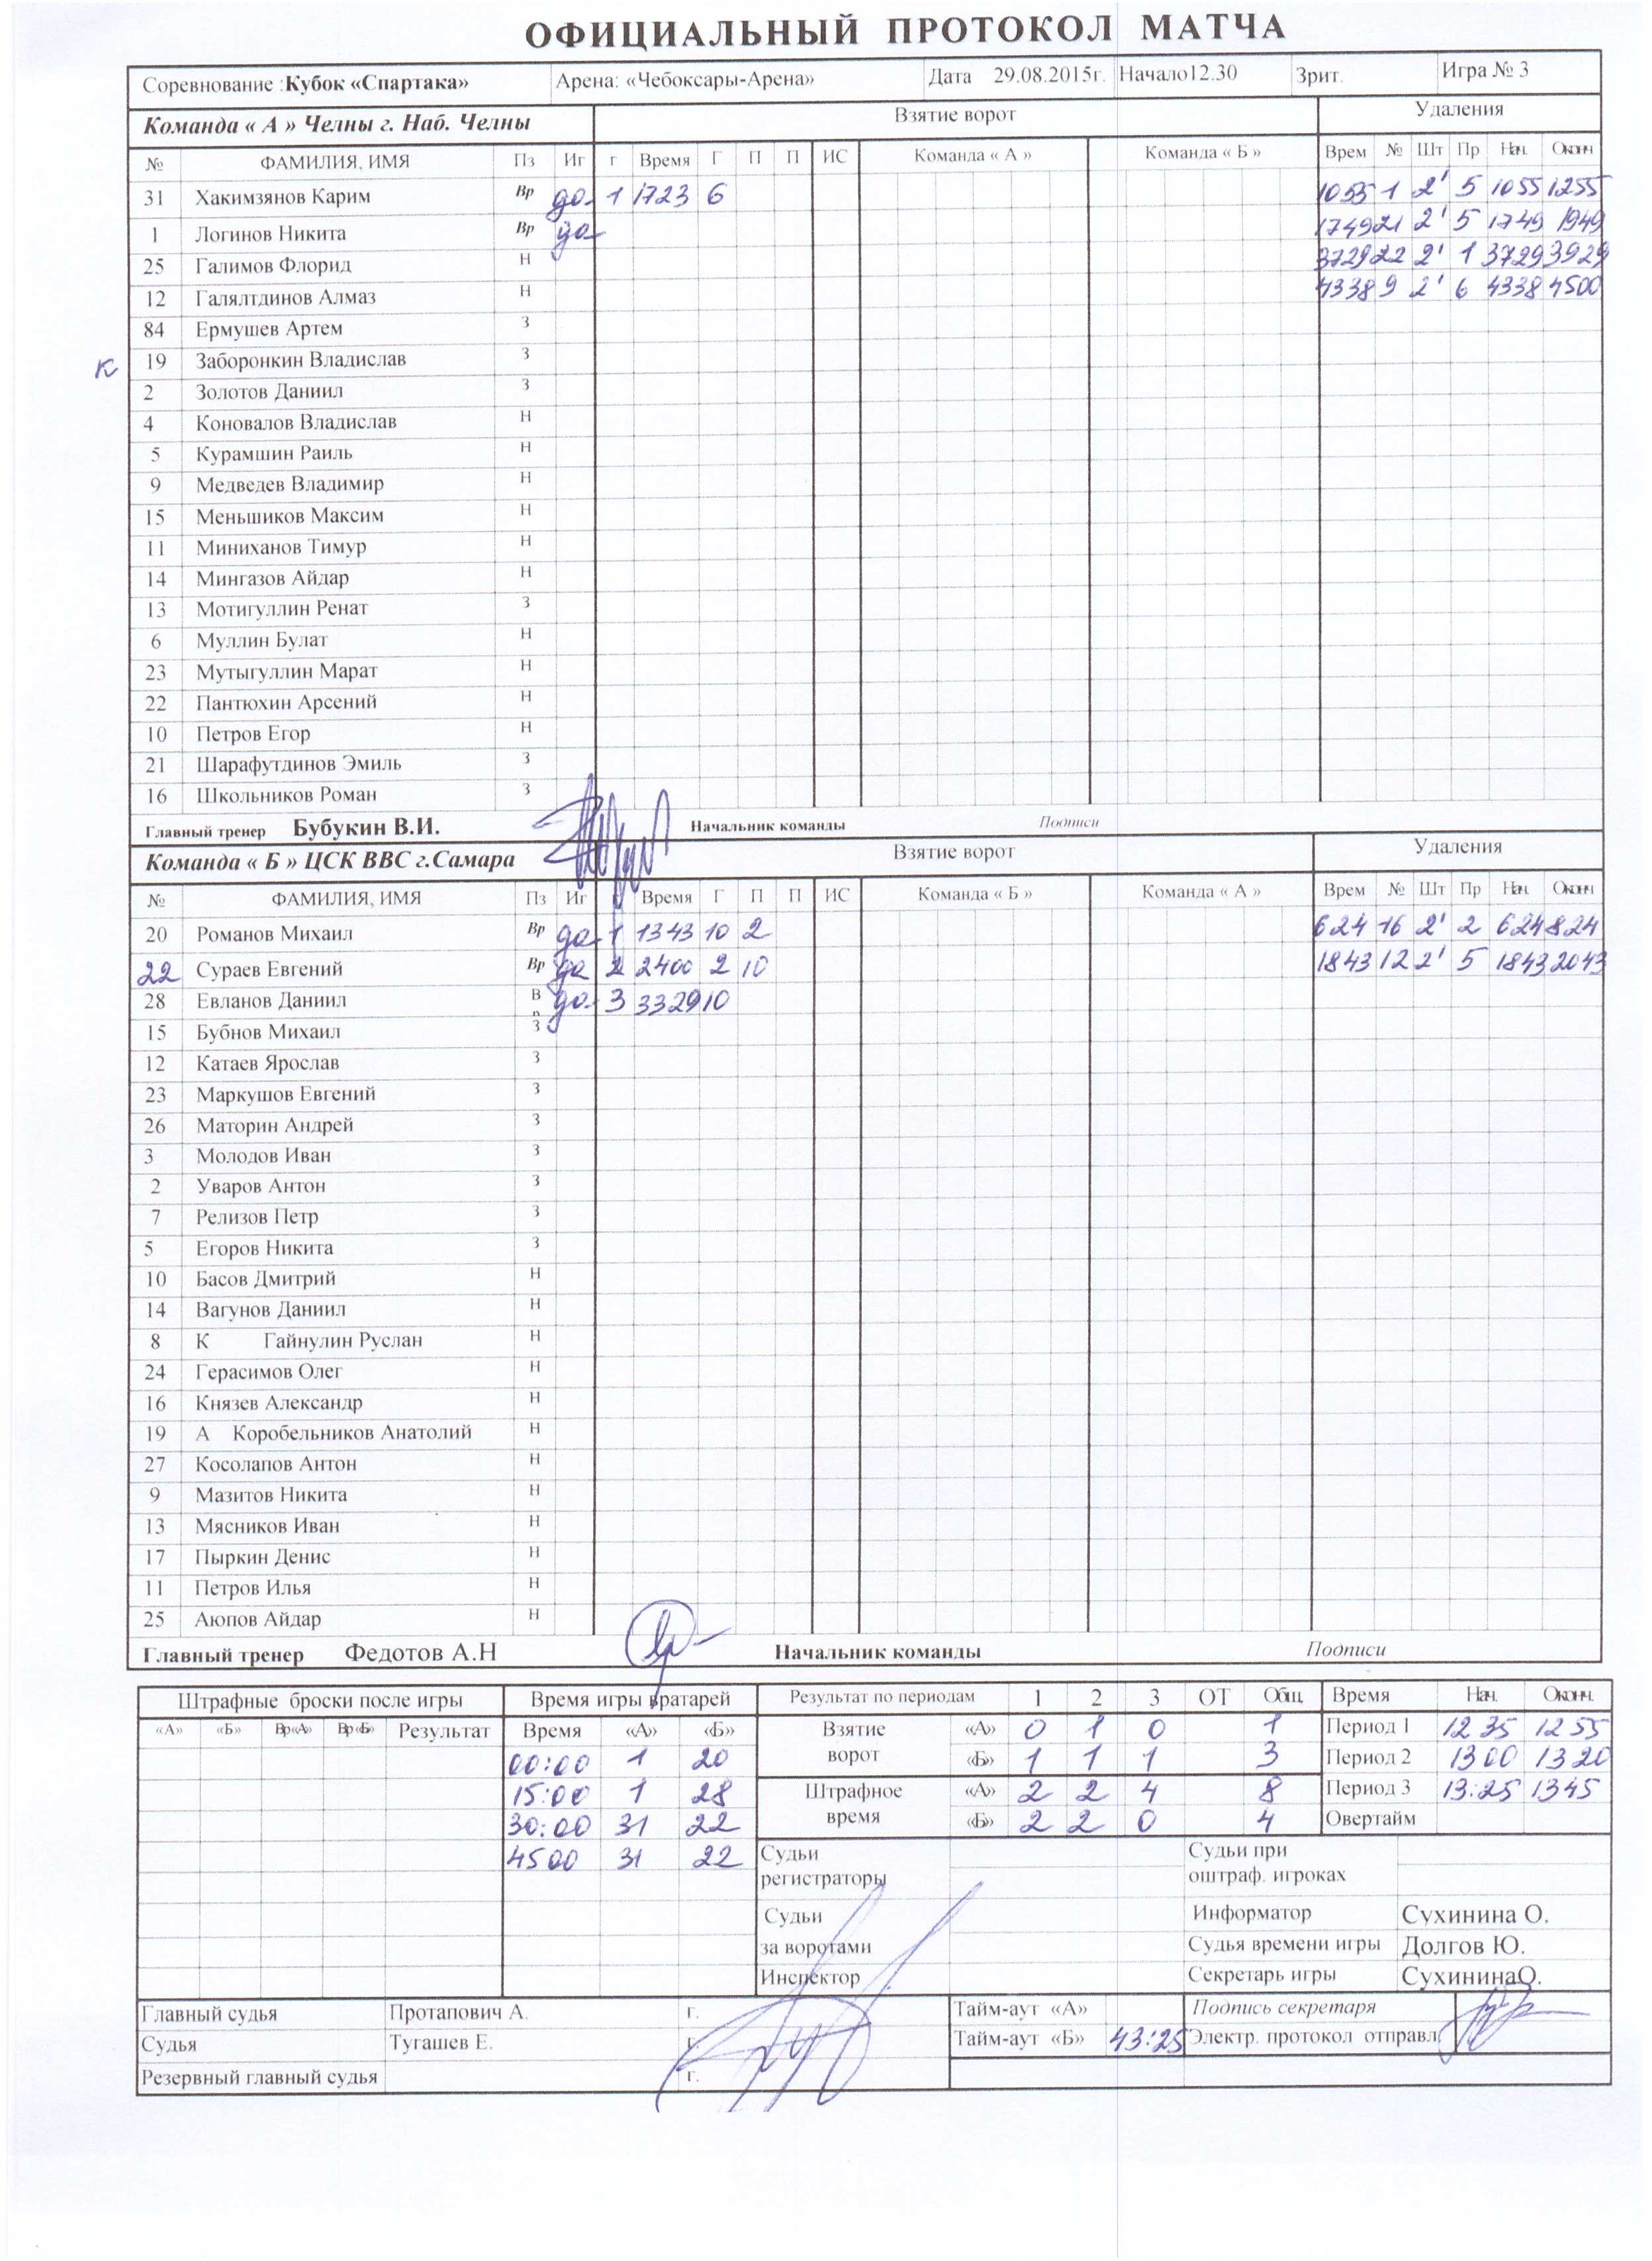 ОФИЦИАЛЬНЫЙ ПРОТОКОЛ МАТЧА
Соревнование :Кубок «Спартака» Арена: «Чебоксары-Арена» Дата 29.08.2015г. Начало12.30 Зрит. Игра № 3
Команда « А » Челны г. Наб. Челны Взятие ворот Удаления
№ ФАМИЛИЯ, ИМЯ Пз Иг г Время Г П П ИС Команда « А » Команда « Б » Врем № Шт Пр Нач. Оконч
31 Хакимзянов Карим Вр да 1 1723 6 1055 1 2' 5 1055 1255
1 Логинов Никита Вр да 1749 21 2' 5 1749 1949
25 Галимов Флорид Н 3729 22 2' 1 3729 3929
12 Галялтдинов Алмаз Н 4338 9 2' 6 4338 4500
84 Ермушев Артем З
к 19 Заборонкин Владислав З
2 Золотов Даниил З
4 Коновалов Владислав Н
5 Курамшин Раиль Н
9 Медведев Владимир Н
15 Меньшиков Максим Н
11 Миниханов Тимур Н
14 Мингазов Айдар Н
13 Мотигуллин Ренат З
6 Муллин Булат Н
23 Мутыгуллин Марат Н
22 Пантюхин Арсений Н
10 Петров Егор Н
21 Шарафутдинов Эмиль З
16 Школьников Роман З
Главный тренер Бубукин В.И. Начальник команды Подписи
Команда « Б » ЦСК ВВС г.Самара Взятие ворот Удаления
№ ФАМИЛИЯ, ИМЯ Пз Иг Время Г П П ИС Команда « Б » Команда « А » Врем № Шт Пр Нач. Оконч
20 Романов Михаил Вр да 1 1343 10 2 624 16 2' 2 624 824
22 Сураев Евгений Вр да 2 2400 2 10 1843 12 2' 5 1843 2043
28 Евланов Даниил В да 3 3329 10
15 Бубнов Михаил З
12 Катаев Ярослав З
23 Маркушов Евгений З
26 Маторин Андрей З
3 Молодов Иван З
2 Уваров Антон З
7 Релизов Петр З
5 Егоров Никита З
10 Басов Дмитрий Н
14 Вагунов Даниил Н
8 К Гайнулин Руслан Н
24 Герасимов Олег Н
16 Князев Александр Н
19 А Коробельников Анатолий Н
27 Косолапов Антон Н
9 Мазитов Никита Н
13 Мясников Иван Н
17 Пыркин Денис Н
11 Петров Илья Н
25 Аюпов Айдар Н
Главный тренер Федотов А.Н Начальник команды Подписи
Штрафные броски после игры Время игры вратарей Результат по периодам 1 2 3 ОТ Общ. Время Нач. Оконч.
«А» «Б» Вр«А» Вр«Б» Результат Время «А» «Б» Взятие ворот «А» 0 1 0 1 Период 1 12 35 12 55
00:00 1 20 «Б» 1 1 1 3 Период 2 13 00 13 20
15:00 1 28 Штрафное время «А» 2 2 4 8 Период 3 13:25 13 45
30:00 31 22 «Б» 2 2 0 4 Овертайм
45 00 31 22 Судьи регистраторы Судьи при оштраф. игроках
Судьи Информатор Сухинина О.
за воротами Судья времени игры Долгов Ю.
Инспектор Секретарь игры СухининаО.
Главный судья Протапович А. г. Тайм-аут «А» Подпись секретаря
Судья Тугашев Е. г. Тайм-аут «Б» 43:25 Электр. протокол отправл.
Резервный главный судья г.